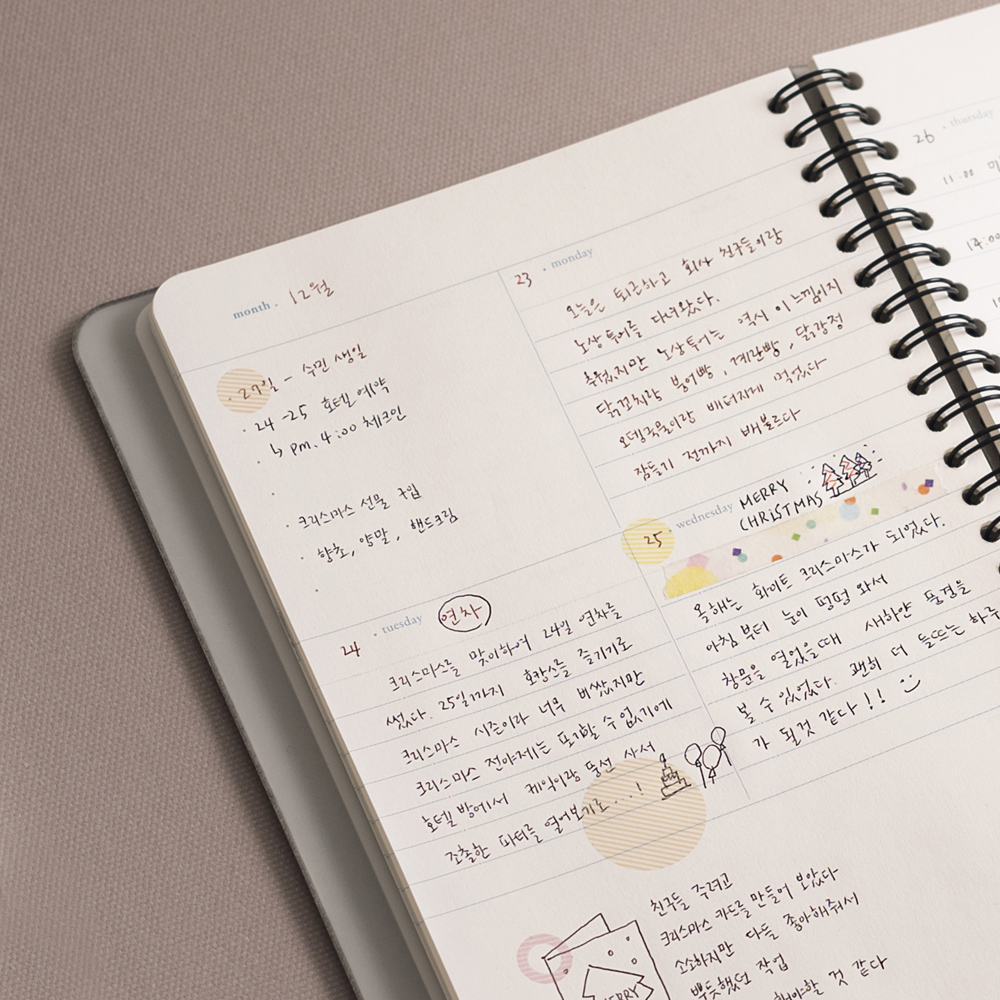 month · 12월
· 27일 - 수민 생일
· 24 -25 호텔 예약
· ↳ pm. 4:00 체크인
· 크리스마스 선물 구입
· 향초, 양말, 핸드크림
23 · monday
오늘은 퇴근하고 회사 친구들이랑
노상 투어를 다녀왔다.
추웠지만 노상투어는 역시 이 느낌이지
닭꼬치랑 붕어빵, 계란빵, 닭강정
오뎅국물이랑 배터지게 먹었다
잠들기 전까지 배부르다
24 · tuesday 연차
크리스마스를 맞이하여 24일 연차를
썼다. 25일까지 호캉스를 즐기기로
크리스마스 시즌이라 너무 비쌌지만
크리스마스 전야제는 포기할 수 없기에
호텔방에서 케익이랑 풍선 사서
조촐한 파티를 열어보기로...!
25 wednesday MERRY
CHRISTMAS
올해는 화이트 크리스마스가 되었다.
아침부터 눈이 펑펑 와서
창문을 열었을때 새하얀 풍경을
볼 수 있었다. 괜히 더 들뜨는 하루
가 될것 같다!!
친구들 주려고
크리스마스 카드를 만들어 보았다
소소하지만 다들 좋아해줘서
뿌듯했던 작업
해야할 것 같다
MERRY
26 · thursday
11:00
14:00